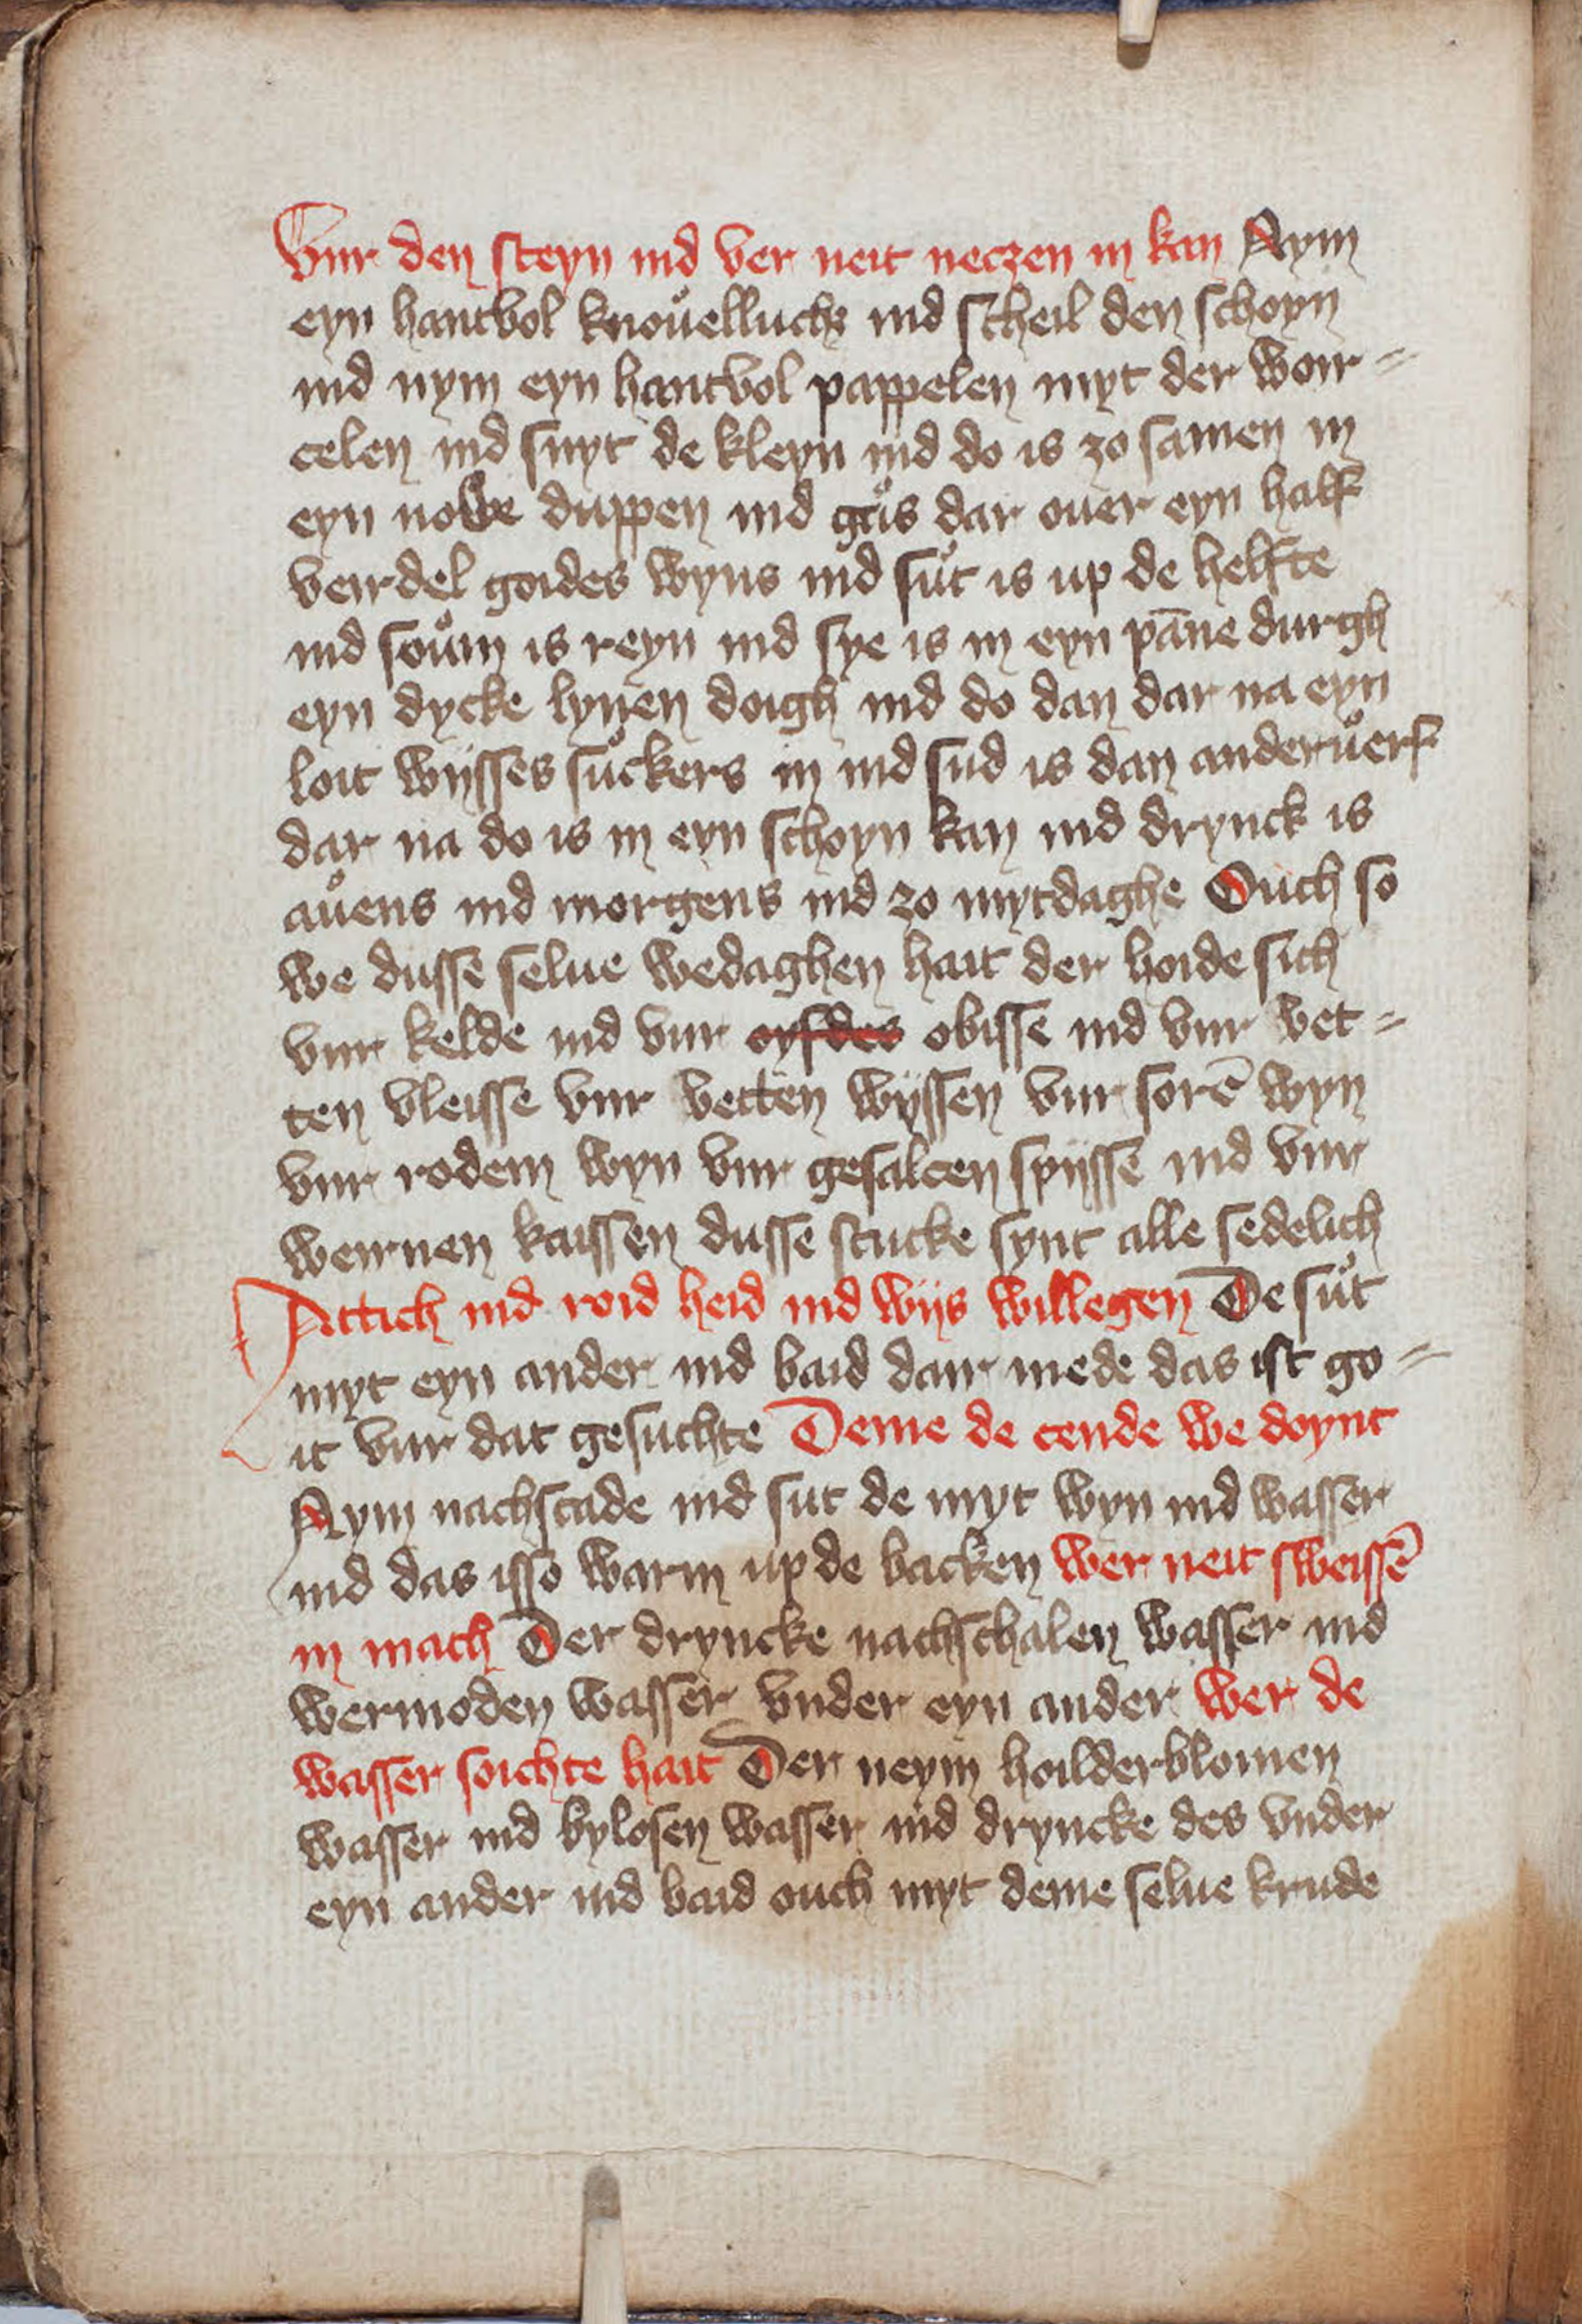 Vur den steyn ind ver neit neczen in kan Nym
eyn hantvol knoůelluchs ind scheil den schoyn
ind nym eyn hantvol pappelen myt der wor=
celen ind snyt de kleyn ind do is zo samen in
eyn nowe duppen ind gůs dar ouer eyn half
veirdel goides wyns ind sůt is up de helfte
ind soům is reyn ind sye is in eyn pāne durgh
eyn dycke lynen doigh ind do dan dar na eyn
loit wijsses sůckers in ind sud is dan anderůerf
dar na do is in eyn schoyn kan ind drynck is
aůens ind morgens ind zo mytdaghe Ouch so
we dusse selue wedaghen hait der hoide sich
vur kelde ind vur obisse ind vur vet=
ten vleisse vur vetten wijssen vur sorē wyn
vur rodem wyn vur gesalcen spijsse ind vur
weirnen kaissen dusse stucke synt alle sedelich
Attich ind roid heid ind wijs willegen De sůt
myt eyn ander ind baid dair mede das ist go=
it vur dat gesuchte Deme de cende we doynt
Nym nachscade ind sut de myt wyn ind wasser
ind das isso warm up de backen wer neit sweissē
in mach Der dryncke nachschalen wasser ind
wermoden wasser vnder eyn ander wer de
wasser soichte hait Der neym hoilderblomen
wasser ind bylosen wasser ind dryncke des vnder
eyn ander ind baid ouch myt deme selue krude